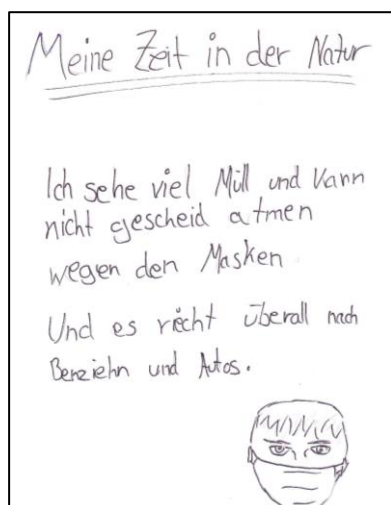 Meine Zeit in der Natur
Ich sehe viel Müll und kann
nicht gescheid atmen
wegen den Masken
Und es riecht überall nach
Benziehn und Autos.